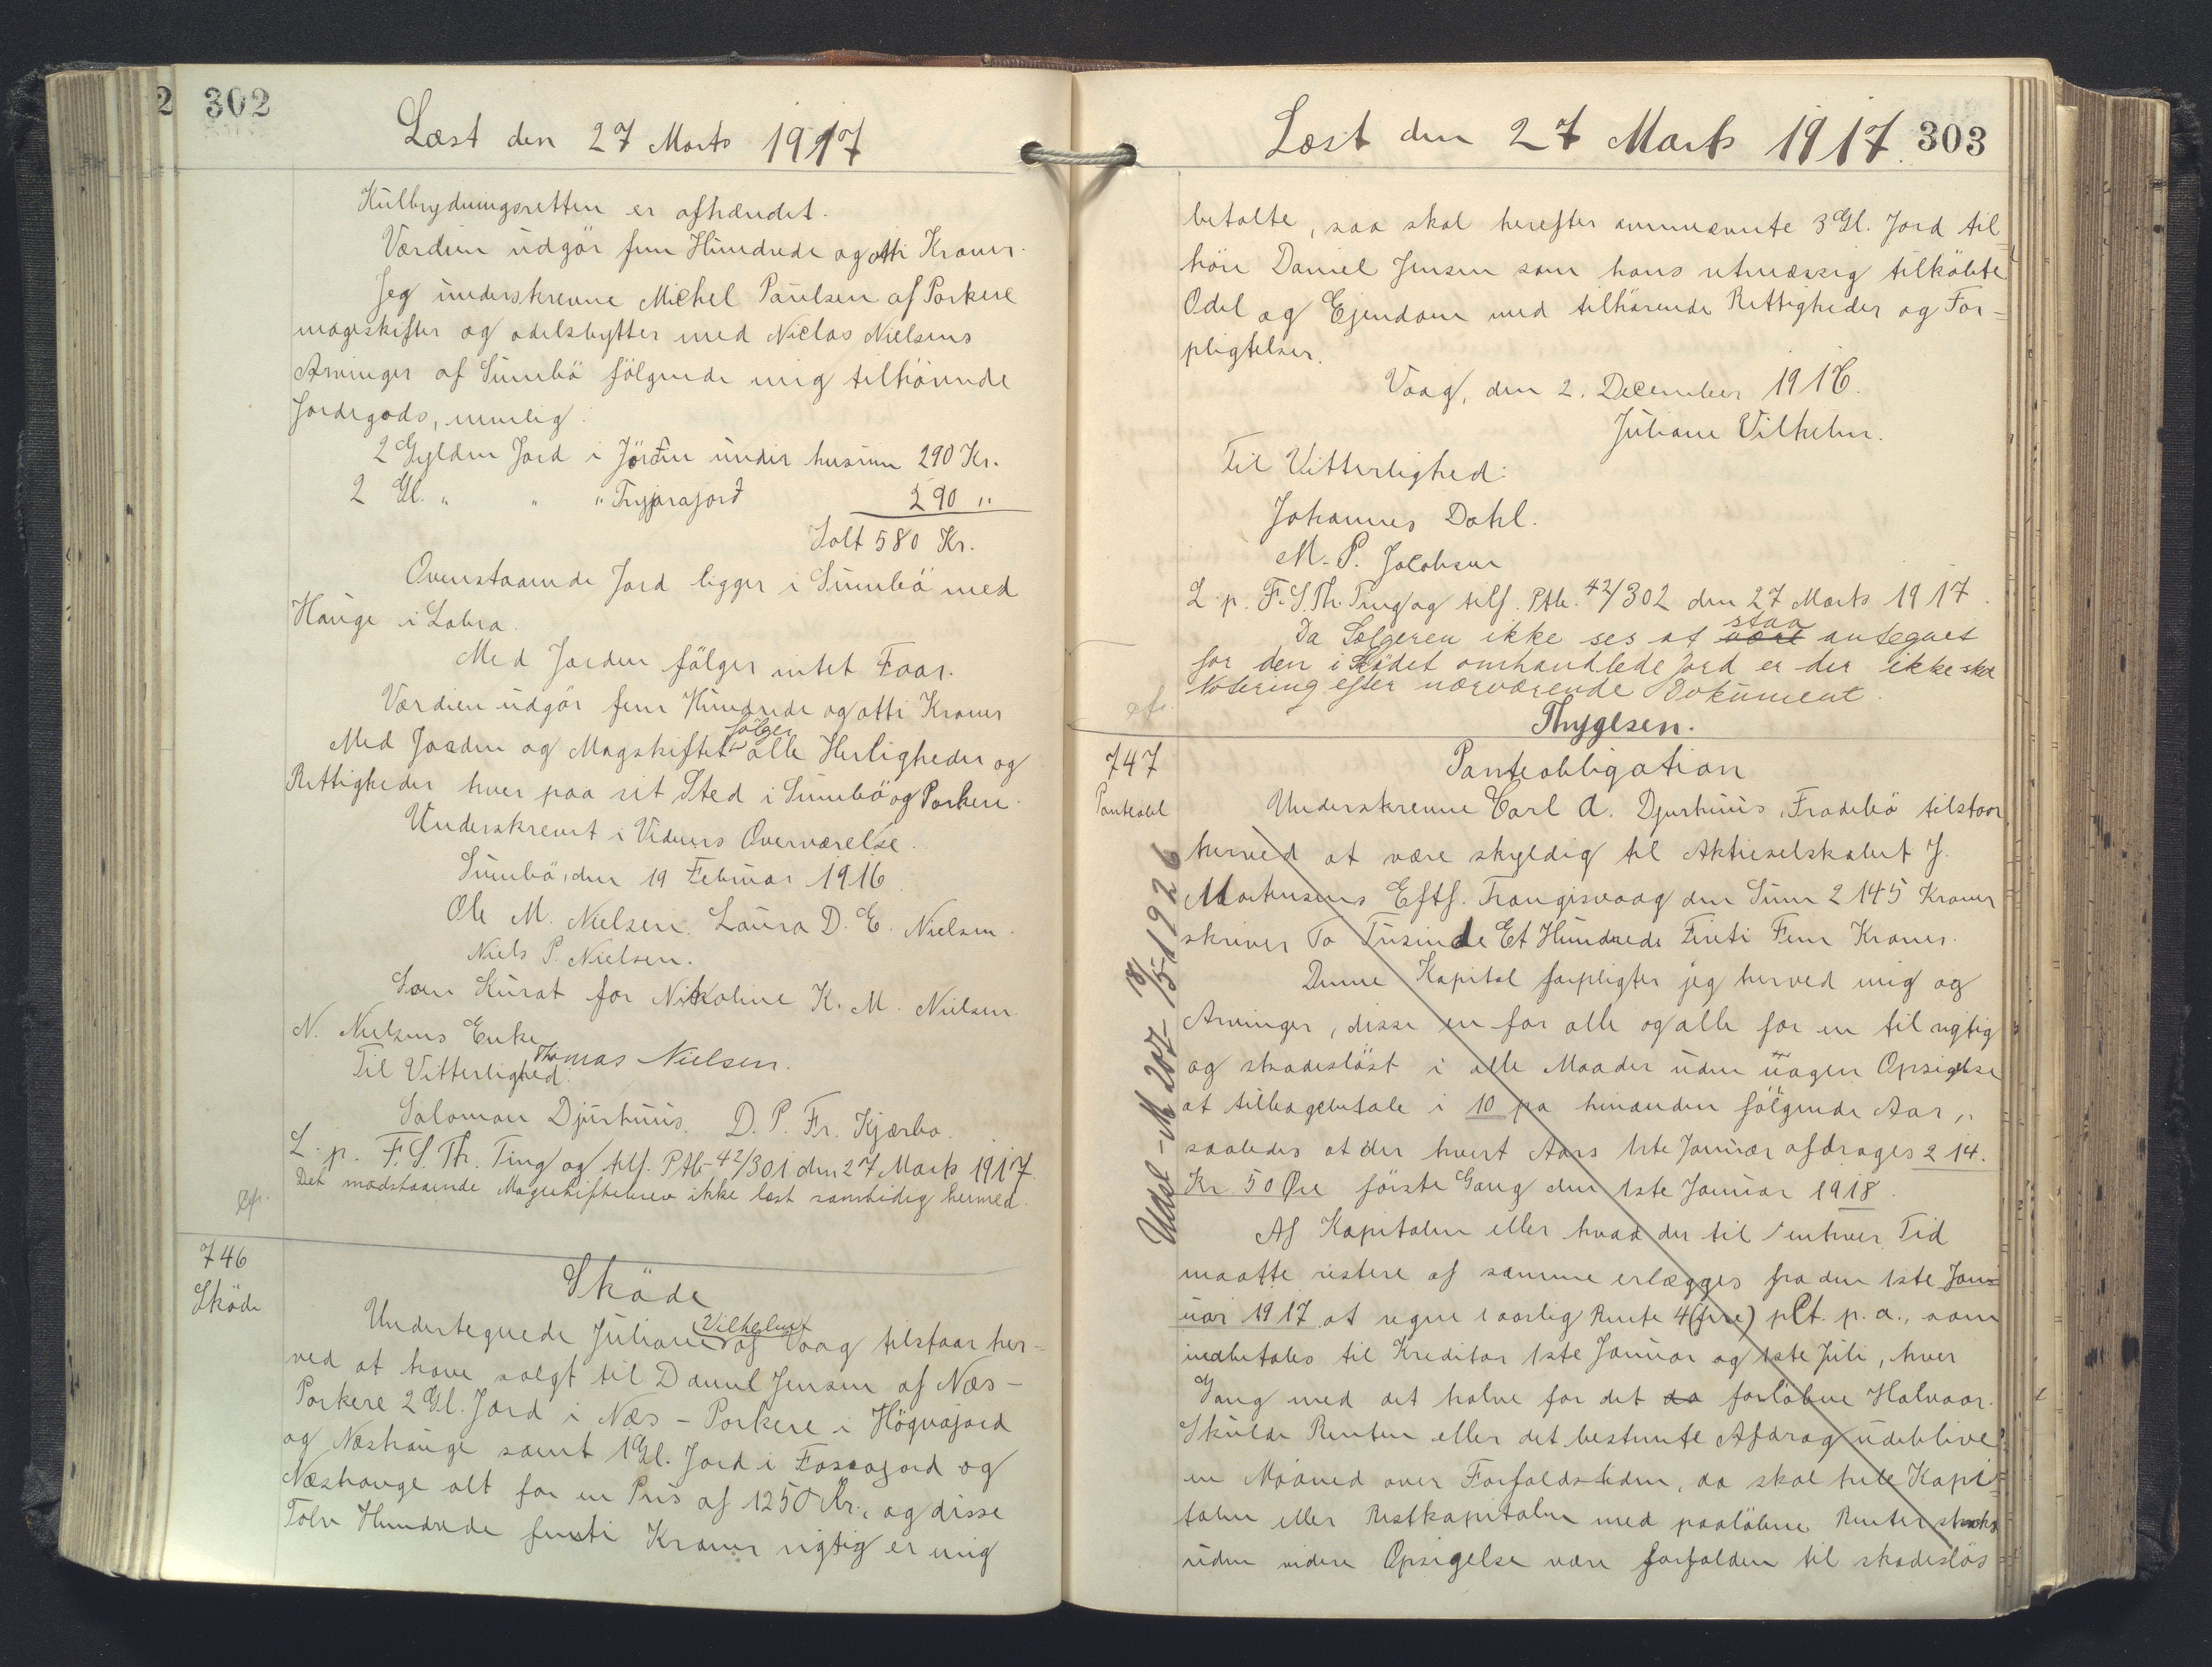 302
Læst den 27 Marts 1917
Kulbrydningsretten er afhændet.
Værdien udgör fem Hundrede og otti Kroner.
Jeg underskrevne Michel Poulsen af Porkere
mageskifter og odelsbytter med Niclas Nielsens
Arvinger af Sumbö fölgende mig tilhörende
Jordegods, nemlig:
2 Gylden Jord i Jördin undir husinu 290 Kr.
2 Gl. " " " Tryjarajord 290 "
Ialt 580 Kr.
Ovenstaaende Jord ligger i Sumbö med
Hauge i Lobra.
Med Jorden fölger intet Faar.
Værdien udgör fem Hundrede og otti Kroner
Med Jorden og Magskiftet fölger alle Herligheder og
Rettigheder hver paa sit Sted i Sumbö og Porkere.
Underskrevet i Vidners Overværelse.
Sumbö, den 19 Februar 1916
Ole M. Nielsen. Laura D. E. Nielsen.
Niels P. Nielsen.
Som Kurat for Nikoline K. M. Nielsen
N. Nielsens Enke
Thomas Nielsen.
Til Vitterlighed:
Salomon Djurhuus. D. P. Fr. Kjærbo.
L. p. F. S. Th. Ting og tilf. Ptb. 42/301 den 27 Marts 1917.
Det modstaaende Mageskiftebrev ikke læst samtidig hermed.
cfr.
746
Sköde
Sköde
Undertegnede Juliane Vilhelm af Vaag tilstaar her-
ved at have solgt til Daniel Jensen af Næs-
Porkere 2 Gl. Jord i Næs-Porkere i Högnajord
og Næshauge samt 1 Gl. Jord i Fossajord og
Næshauge alt for en Pris af 1250 Kr., og disse
Tolv Hundrede femti Kroner rigtig er mig
Læst den 27 Marts 1917. 303
betalte, saa skal herefter ommeldte 3 Gl. Jord til-
höre Daniel Jensen som hans retmæssig tilköbte
Odel og Ejendom med tilhörende Rettigheder og For-
pligtelser.
Vaag, den 2. December 1916.
Juliane Vilhelm.
Til Vitterlighed:
Johannes Dahl.
M. P. Jacobsen
L. p. F. S. Th. Ting og tilf. Ptb. 42/302 den 27 Marts 1917.
Da Sælgeren ikke ses at være staa antegnet
for den i Sködet omhandlede Jord er der ikke sket
Notering efter nærværende Dokument.
cfr.
Thygesen.
747
Panteobl
Panteobligation
Underskrevne Carl A. Djurhuus, Frodebö tilstaar
herved at være skyldig til Aktieselskabet J.
Mortensens Eftf. Trangisvaag den Sum 2145 Kroner
skriver To Tusinde Et Hundrede Firti Fem Kroner.
Denne Kapital forpligter jeg herved mig og
Arvinger, disse en for alle og alle for en til rigtig
og skadesløst i alle Maader uden nogen Opsigelse
at tilbagebetale i 10 pa hinanden fölgende Aar,
saaledes at der hvert Aars 1ste Januar afdrages 214.
Kr. 50 Øre förste Gang den 1ste Januar 1918.
Af Kapitalen eller hvad der til enhver Tid
maatte restere af samme erlægges fra den 1ste Jan-
uar 1917 at regne i aarlig Rente 4 (fire) pCt. p. a., som
indbetales til Kreditor 1ste Januar og 1ste Juli, hver
Gang med det halve for det da forløbne Halvaar.
Skulde Renten eller det bestemte Afdrag udeblive
en Maaned over Forfaldstiden, da skal hele Kapi-
talen eller Restkapitalen med paaløbne Renter straks
uden videre Opsigelse være forfalden til skadesløs
Udsl - M 207 - 18/5 - 1926